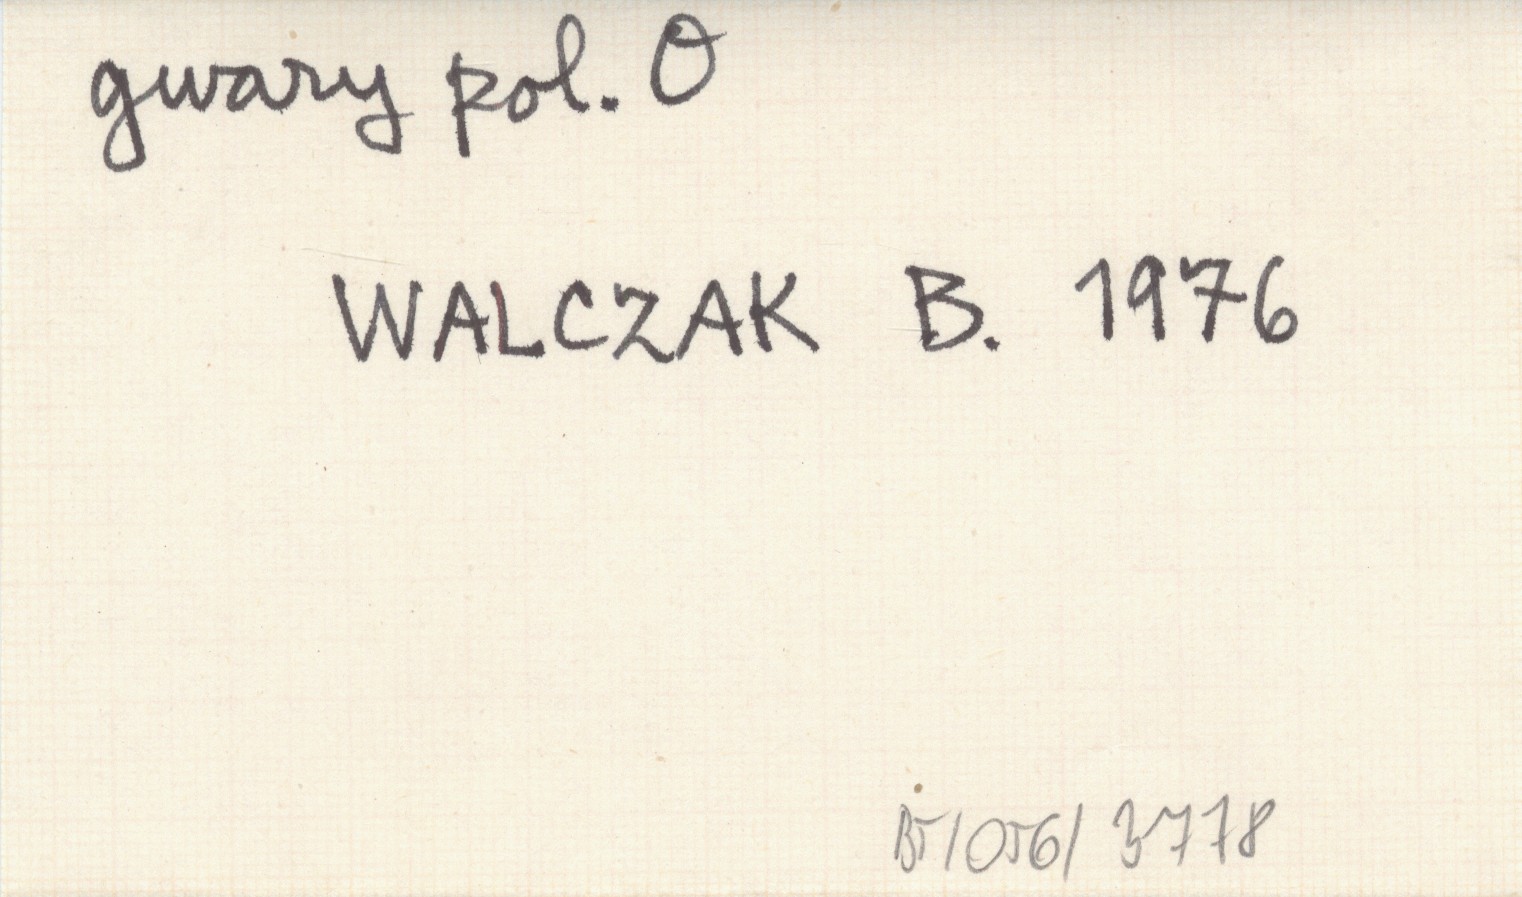 gwary pol. O
WALCZAK B. 1976
B5/056/3778